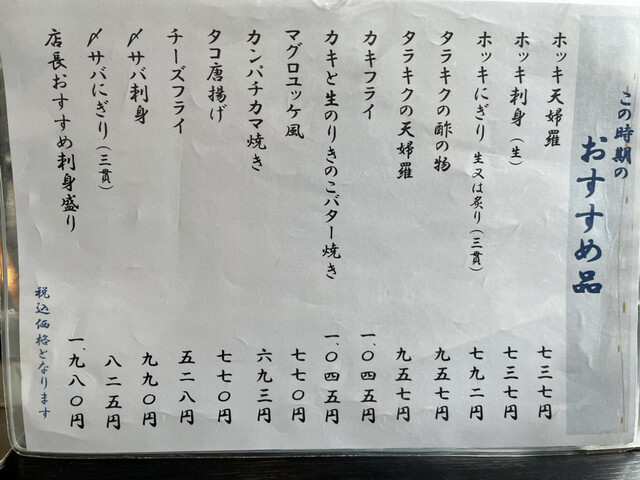 この時期の
おすすめ品
ホッキ天婦羅 七三七円
ホッキ刺身(生) 七三七円
ホッキにぎり 生又は炙り(三貫) 七九二円
タラキクの酢の物 九五七円
タラキクの天婦羅 九五七円
カキフライ 一、〇四五円
カキと生のりきのこバター焼き 一、〇四五円
マグロユッケ風 七七〇円
カンパチカマ焼き 六九三円
タコ唐揚げ 七七〇円
チーズフライ 五二八円
〆サバ刺身 九九〇円
〆サバにぎり(三貫) 八二五円
店長おすすめ刺身盛り 一、九八〇円
税込価格となります